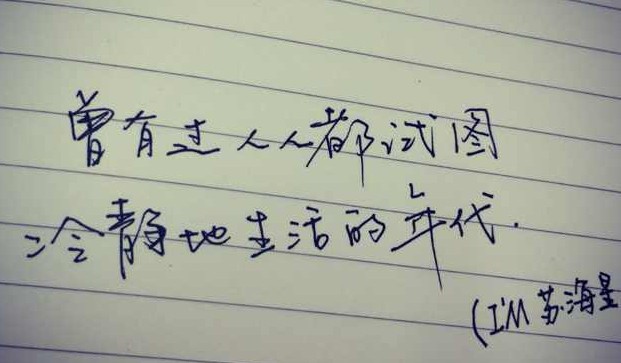 曾有过人人都试图
冷静地生活的年代.
(I'M 苏海星